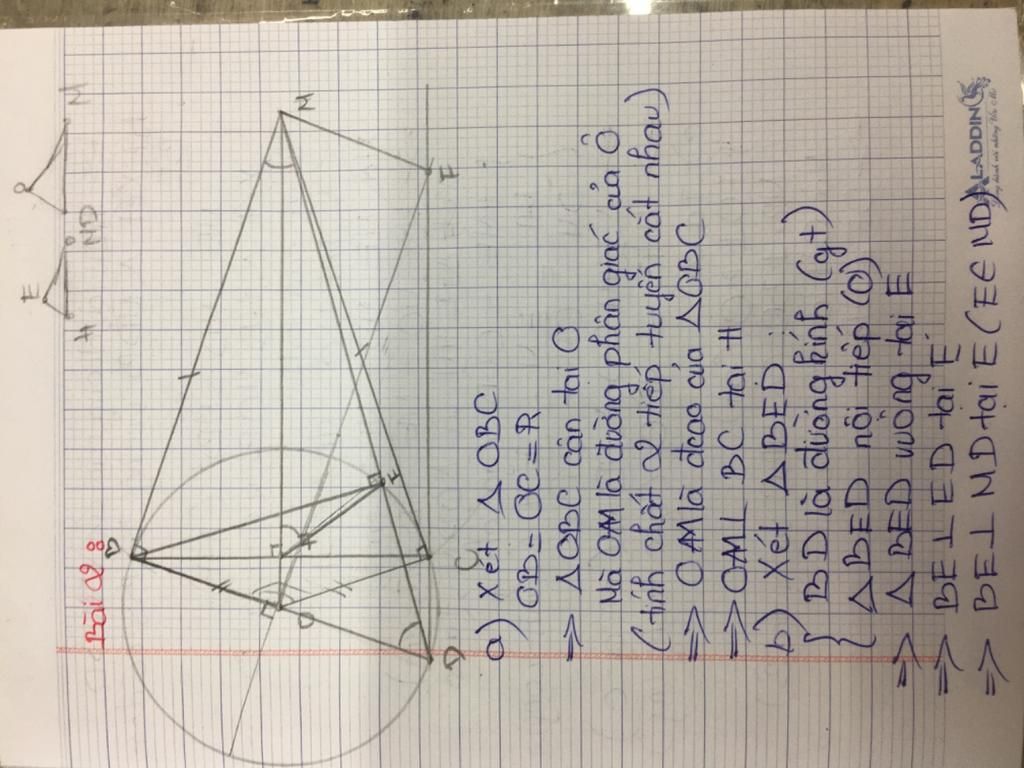 Bài 28
B
M
O
H
E
D
C
F
E
H
O
MD
M
a) Xét △OBC
OB = OC = R
⇒ △OBC cân tại O
Mà OM là đường phân giác của Ô
(tính chất 2 tiếp tuyến cắt nhau)
⇒ OM là đcao của △OBC
⇒ OM ⊥ BC tại H
b) Xét △BED:
{ BD là đường kính (gt)
△BED nội tiếp (O)
⇒ △BED vuông tại E
⇒ BE ⊥ ED tại E
⇒ BE ⊥ MD tại E (E ∈ MD)
ALADDIN